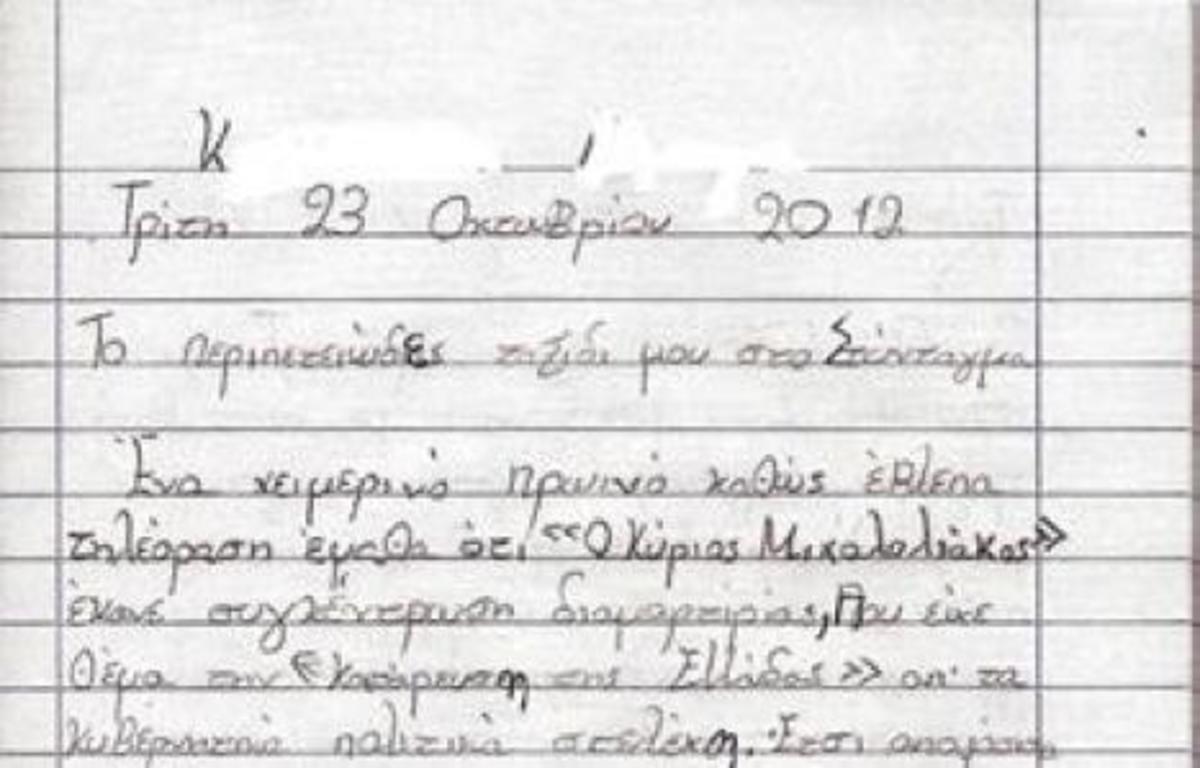 Κ
Τρίτη 23 Οκτωβρίου 2012
Το περιπετειώδες ταξίδι μου στο Σύνταγμα
Ένα χειμερινό πρωινό καθώς έβλεπα
τηλέοραση έμαθα ότι "Ο Κύριος Μιχαλολιάκος»
έκανε συγκέντρωση διαμαρτιρίας, Που είχε
θέμα την «Κατάρευση της Ελλάδας» απ' τα
κυβερνητικά πολιτικά στελέχη. Έτσι